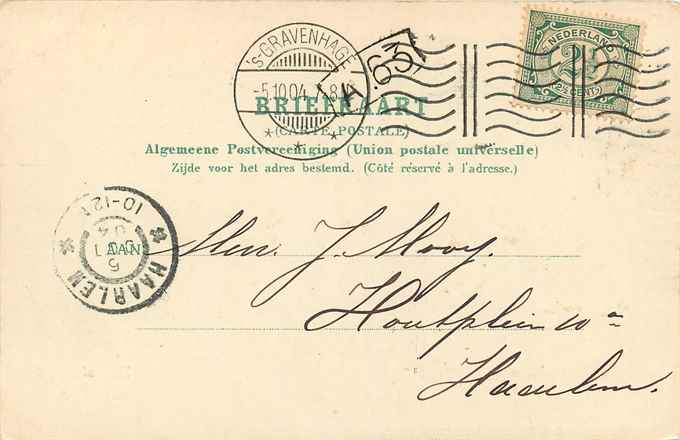 'S-GRAVENHAGE
-5.10.04
A.637
NEDERLAND
2½
2½ CENT
BRIEFKAART
(CARTE POSTALE)
Algemeene Postvereeniging (Union postale universelle)
Zijde voor het adres bestemd. (Côté réservé à l'adresse.)
10-12
04
5
HAARLEM
AAN
J. Mooy.
Houtplein 10 a
Haarlem.